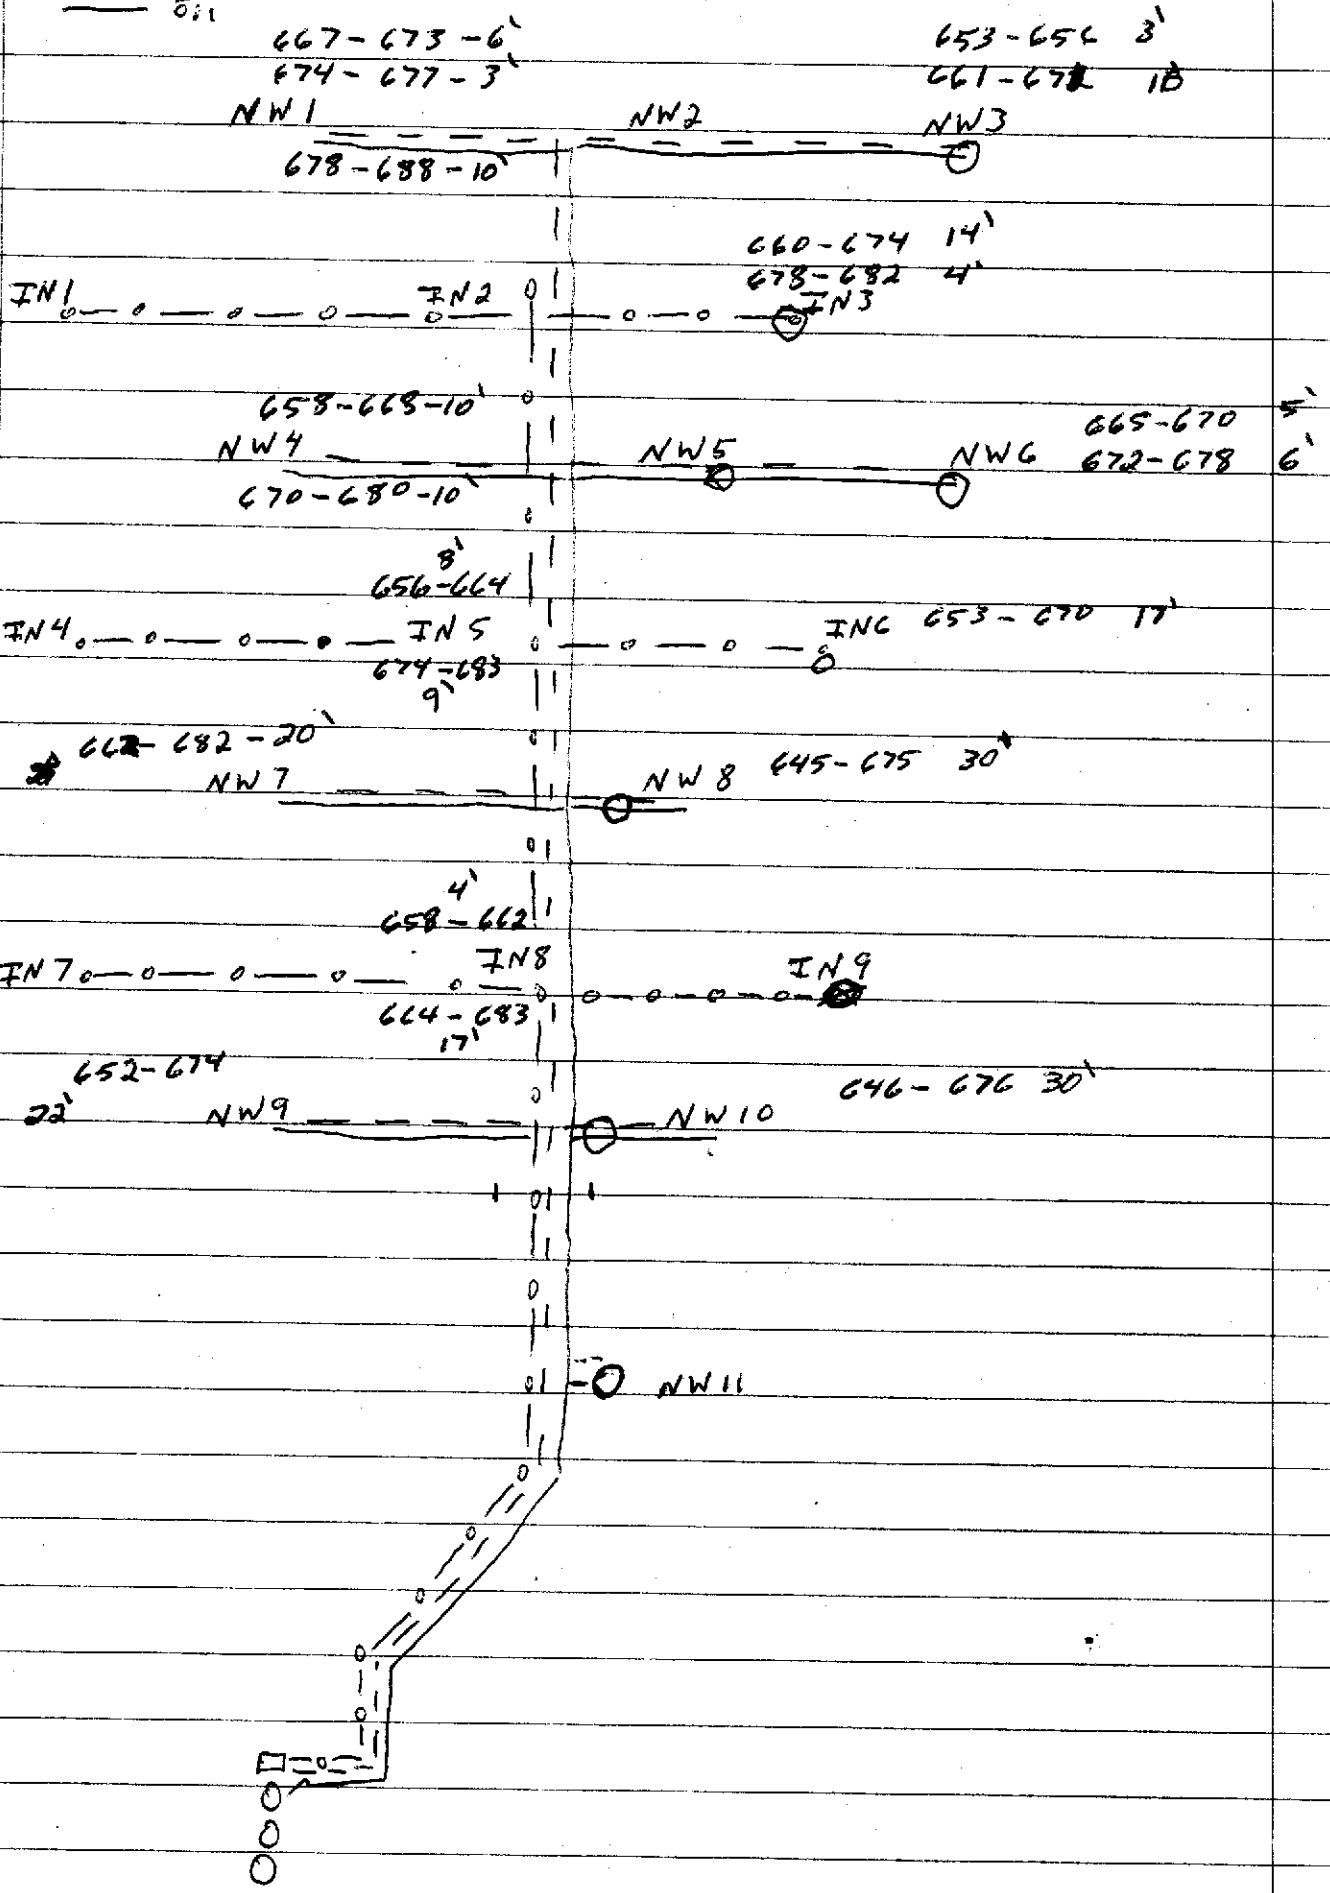 Oil
667-673-6'
653-656 3'
674-677-3'
661-671 10
NW1
NW2
NW3
678-688-10'
660-674 14'
678-682 4'
IN1
IN2
IN3
658-668-10'
665-670 5'
NW4
NW5
NW6
672-678 6'
670-680-10'
8'
656-664
IN4
IN5
IN6
653-670 17'
674-683
9'
662-682-20'
NW7
NW8
645-675 30'
4'
658-662
IN7
IN8
IN9
664-683
17'
652-674
22'
NW9
NW10
646-676 30'
NW11